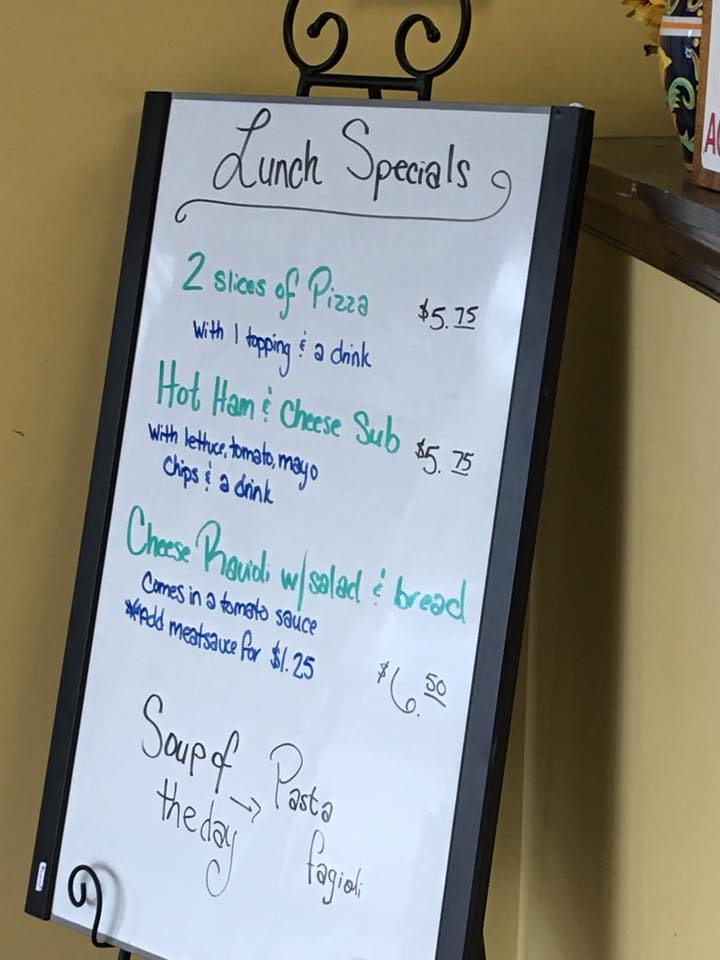 Lunch Specials
2 slices of Pizza $5.75
with 1 topping & a drink
Hot Ham & Cheese Sub $5.75
with lettuce, tomato, mayo
Chips & a drink
Cheese Ravioli w/salad & bread
Comes in a tomato sauce
*Add meatsauce for $1.25
$6.50
Soup of the day → Pasta fagioli